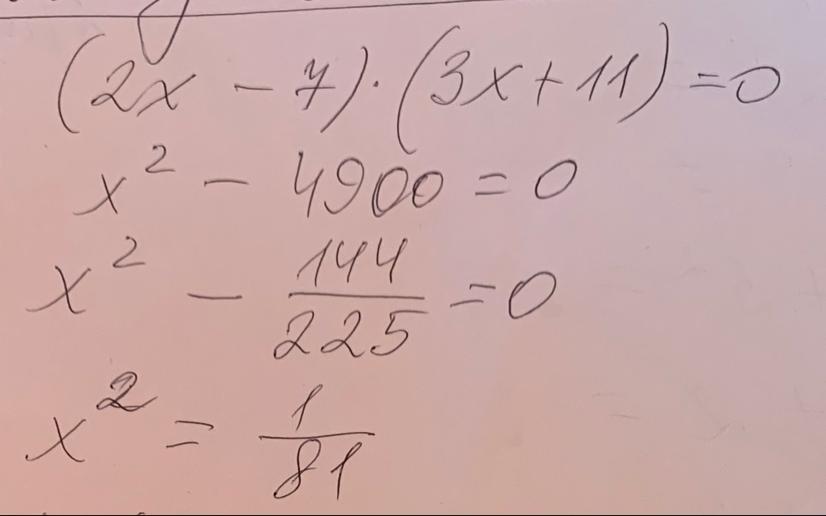 (2x - 7) · (3x + 11) = 0
x² - 4900 = 0
x² - 144/225 = 0
x² = 1/81